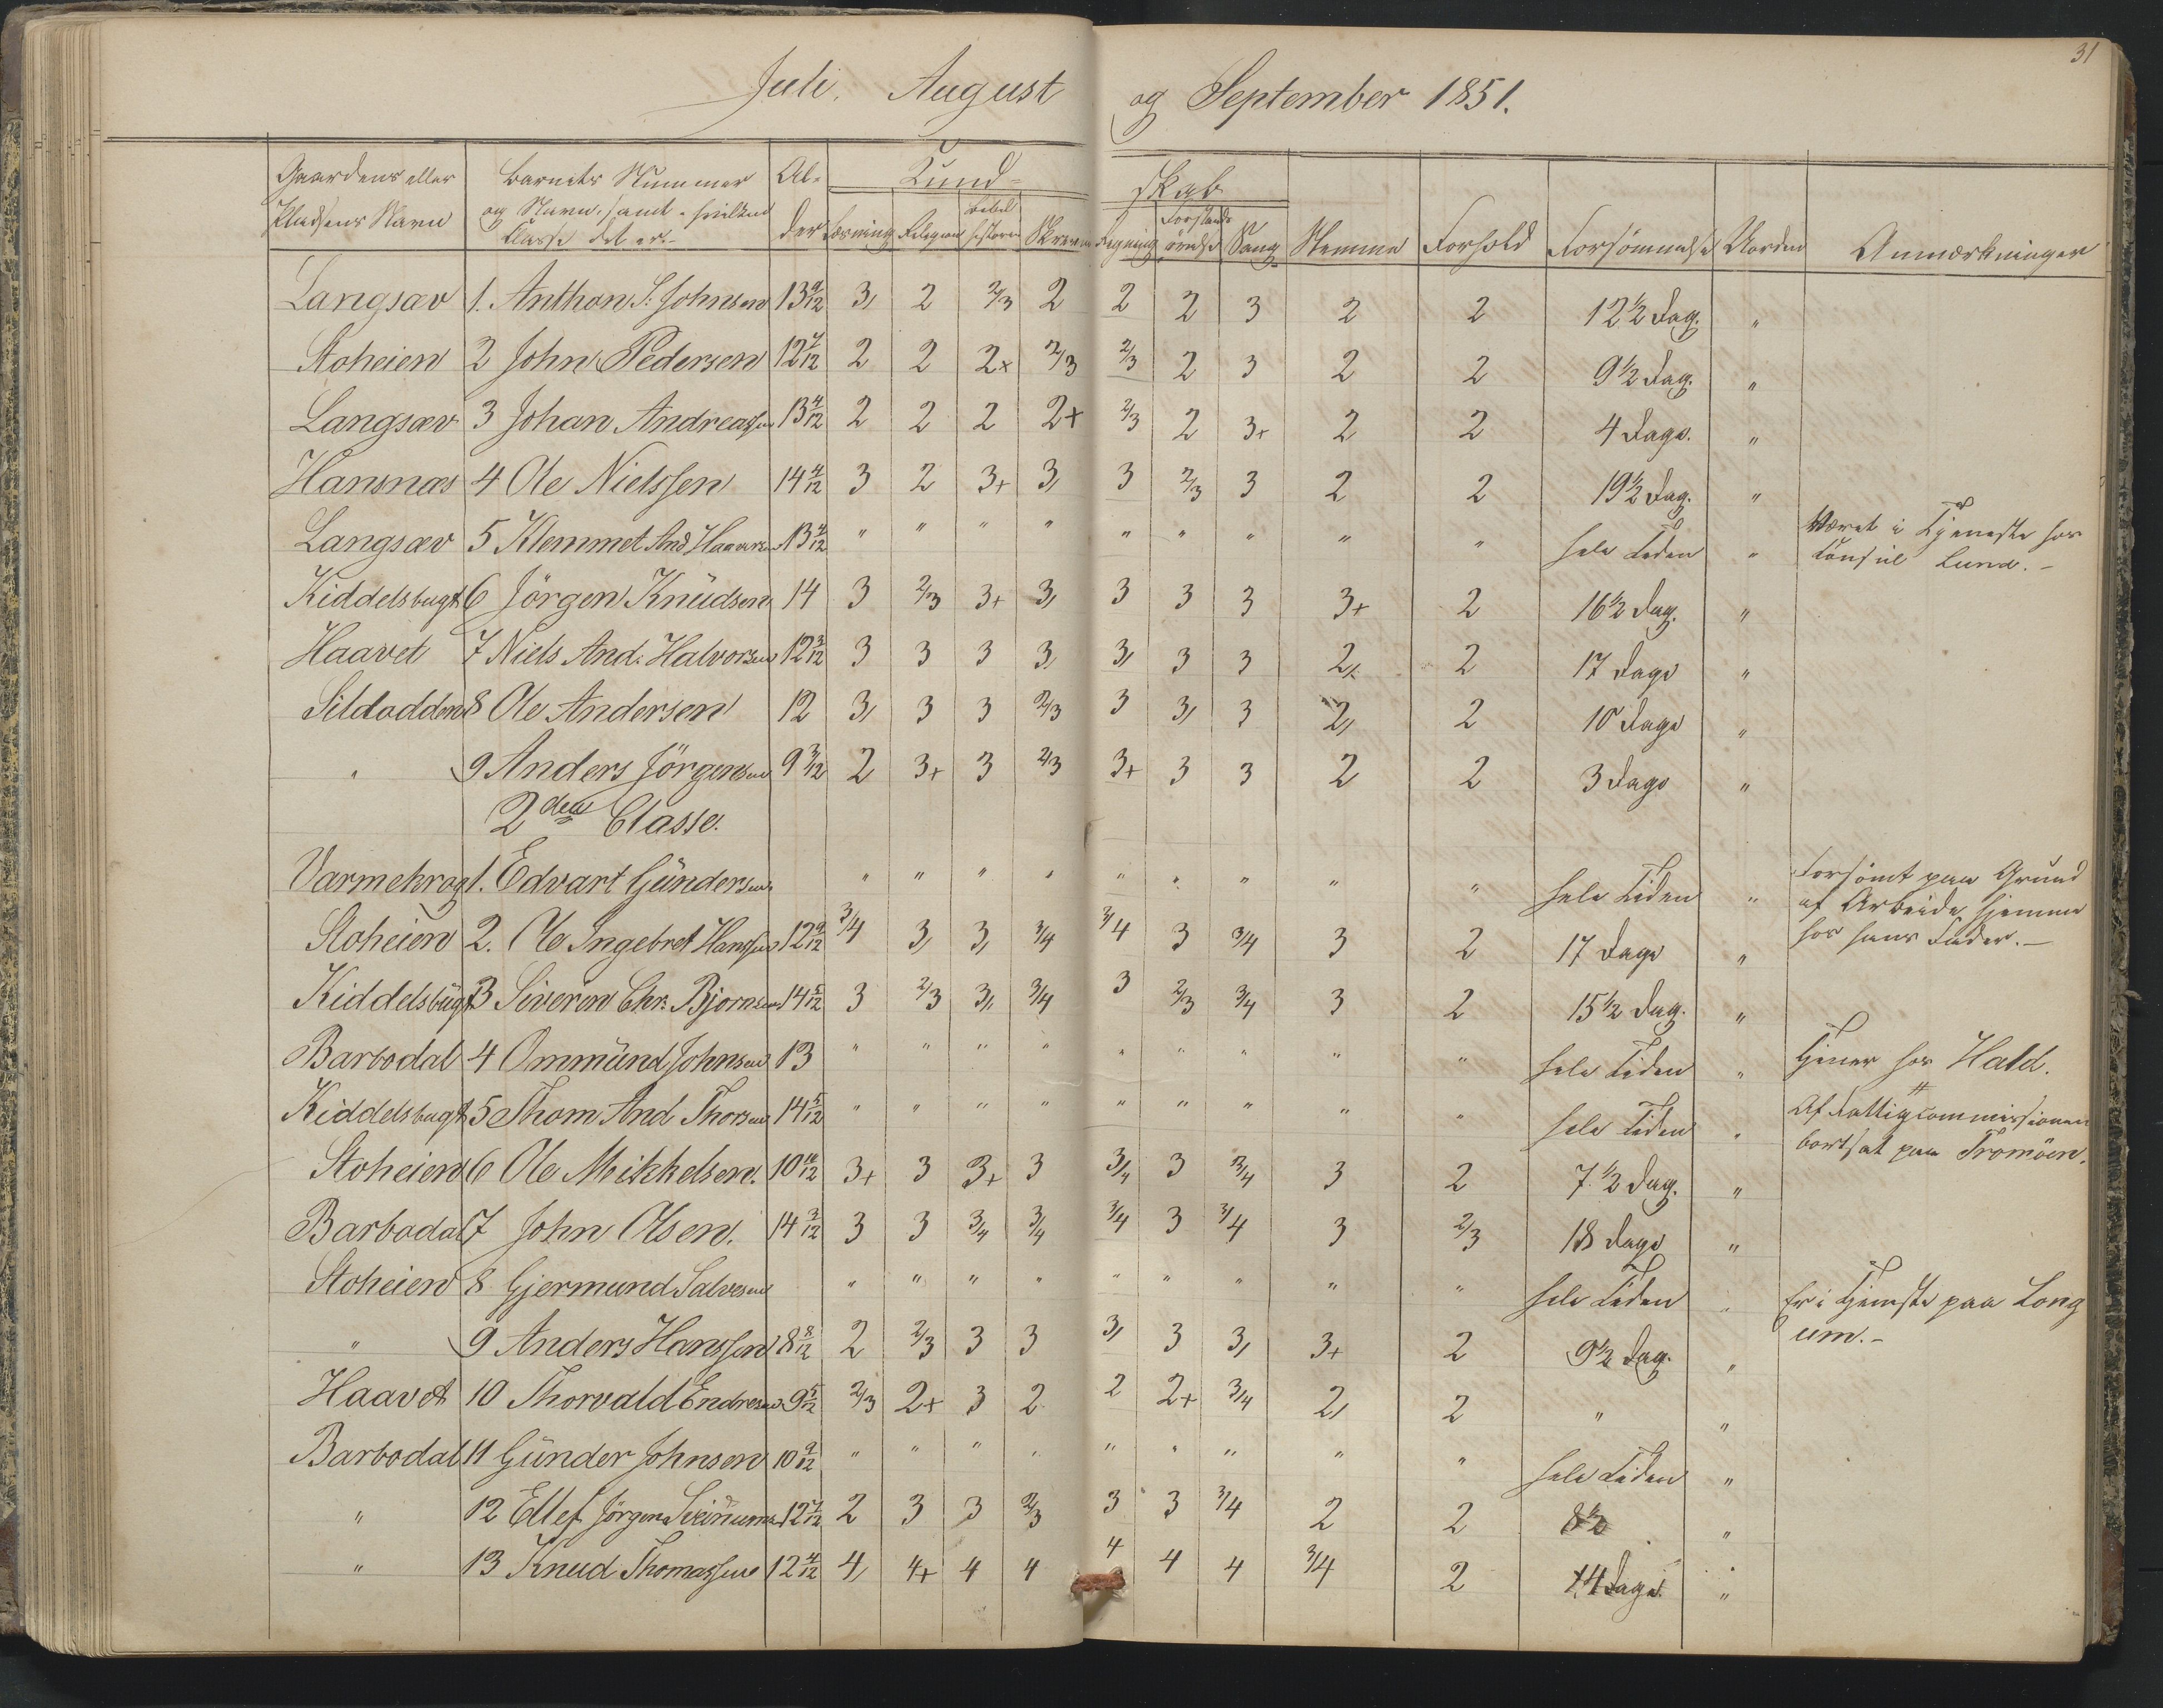 31
Juli, August og September 1851.
Gaardens eller Pladsens Navn | Barnets Nummer og Navn, samt hvilken Classe det er. | Alder | Kundskab | Stemme | Forhold | Forsömmelse | Orden | Anmærkninger
Læsning Religion Bibelhistorie Skrivn Regning Forstandsövelse Sang
Langsæv 1. Anthon S: Johnsen 13 9/12 3, 2 2/3 2 2 2 3 2 2 12½ Dag. "
Stoheien 2 John Pedersen 12 7/12 2 2 2+ 2/3 2/3 2 3 2 2 9½ Dag. "
Langsæv 3 Johan Andreassen 13 4/12 2 2 2 2+ 2/3 2 3+ 2 2 4 Dage. "
Hansnæs 4 Ole Nielssen 14 4/12 3 2 3+ 3, 3 2/3 3 2 2 19½ Dag. "
Langsæv 5 Klemmet And Haavorsen 13 4/12 " " " " " " " " " hele Tiden " Været i Tjeneste hos
Consül Lund. -
Kiddelsbugt 6 Jörgen Knüdsen 14 3 2/3 3+ 3, 3 3 3 3+ 2 16½ Dag. "
Haavet 7 Niels And: Halvorsen 12 3/12 3 3 3 3, 3, 3 3 2, 2 17 Dage "
Sildodden 8 Ole Andersen 12 3, 3 3 2/3 3 3, 3 2, 2 10 Dage "
" 9 Anders Jörgensen 9 3/12 2 3+ 3 2/3 3+ 3 3 2 2 3 Dage "
2den Classe.
Varmekrog 1. Edvart Gündersen " " " " " " " " " hele Tiden " Forsömt paa Grund
af Arbeide hjemme
hos hans Fader. -
Stoheien 2. Ole Ingebret Hanssen 12 9/12 3/4 3, 3, 3/4 3/4 3 3/4 3 2 17 Dage "
Kiddelsbügt 3 Siveren Chr. Bjornsen 14 5/12 3 2/3 3, 3/4 3 2/3 3/4 3 2 15½ Dag. "
Barbodal 4 Ommünd Johnsen 13 " " " " " " " " " hele Tiden " Tjener hos Hald.
Kiddelsbugt 5 Thom And Thorsen 14 5/12 " " " " " " " " " hele Tiden " Af Fattigcommissionen
bortsat paa Tromöen.
Stoheien 6 Ole Mikkelsen. 10 10/12 3+ 3 3+ 3 3/4 3 3/4 3 2 7½ Dag. "
Barbodal 7 John Olsen. 14 3/12 3 3 3/4 3/4 3/4 3 3/4 3 2/3 18 Dage "
Stoheien 8 Gjermund Salvesen " " " " " " " " " hele Tiden " Er i Tjeneste paa Long
um. -
" 9 Anders Hanssen 8 8/12 2 2/3 3 3 3, 3 3, 3+ 2 9½ Dag. "
Haavet 10 Thorvald Endresen 9 5/12 2/3 2+ 3 2 2 2+ 3/4 2, 2 " "
Barbodal 11 Günder Johnsen 10 9/12 " " " " " " " " " hele Tiden "
" 12 Ellef Jörgen 12 7/12 2 3 3 2/3 3 3 3/4 2 2 8½ "
" 13 Knud Thomassen 12 4/12 4, 4+ 4 4 4 4 4 3/4 2 14 Dage. "